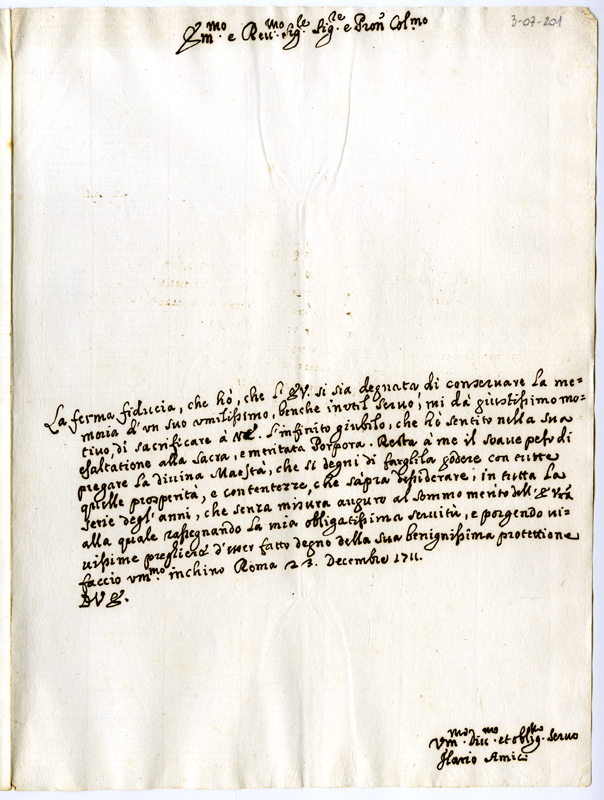 3-07-201
Em.mo e Reu.mo Sig.le Sig.re e Pron Col.mo
La ferma fiducia, che hò, che l'E.V. si sia degnata di conseruare la me=
moria d'vn suo vmilissimo, benche inutil seruo, mi dà giustissimo mo=
tiuo, di sacrificare à VE. l'infinito giubilo, che hò sentito nella sua
esaltatione alla sacra, e meritata Porpora. Resta à me il soaue peso di
pregare la diuina Maestà, che si degni di farglila godere con tutte
quelle prosperità, e contentezze, che sapra desiderare; in tutta la
serie degl'anni, che senza misura auguro al sommo merito dell'E. Vra
alla quale rassegnando la mia obligatissima seruitù, e porgendo ui=
uissime preghiere d'esser fatto degno della sua benignissima protettione
faccio vm.mo inchino Roma 23. Decembre 1711.
D V E.
Vm.mo Diu.mo et oblig. seruo
Ilario Amici